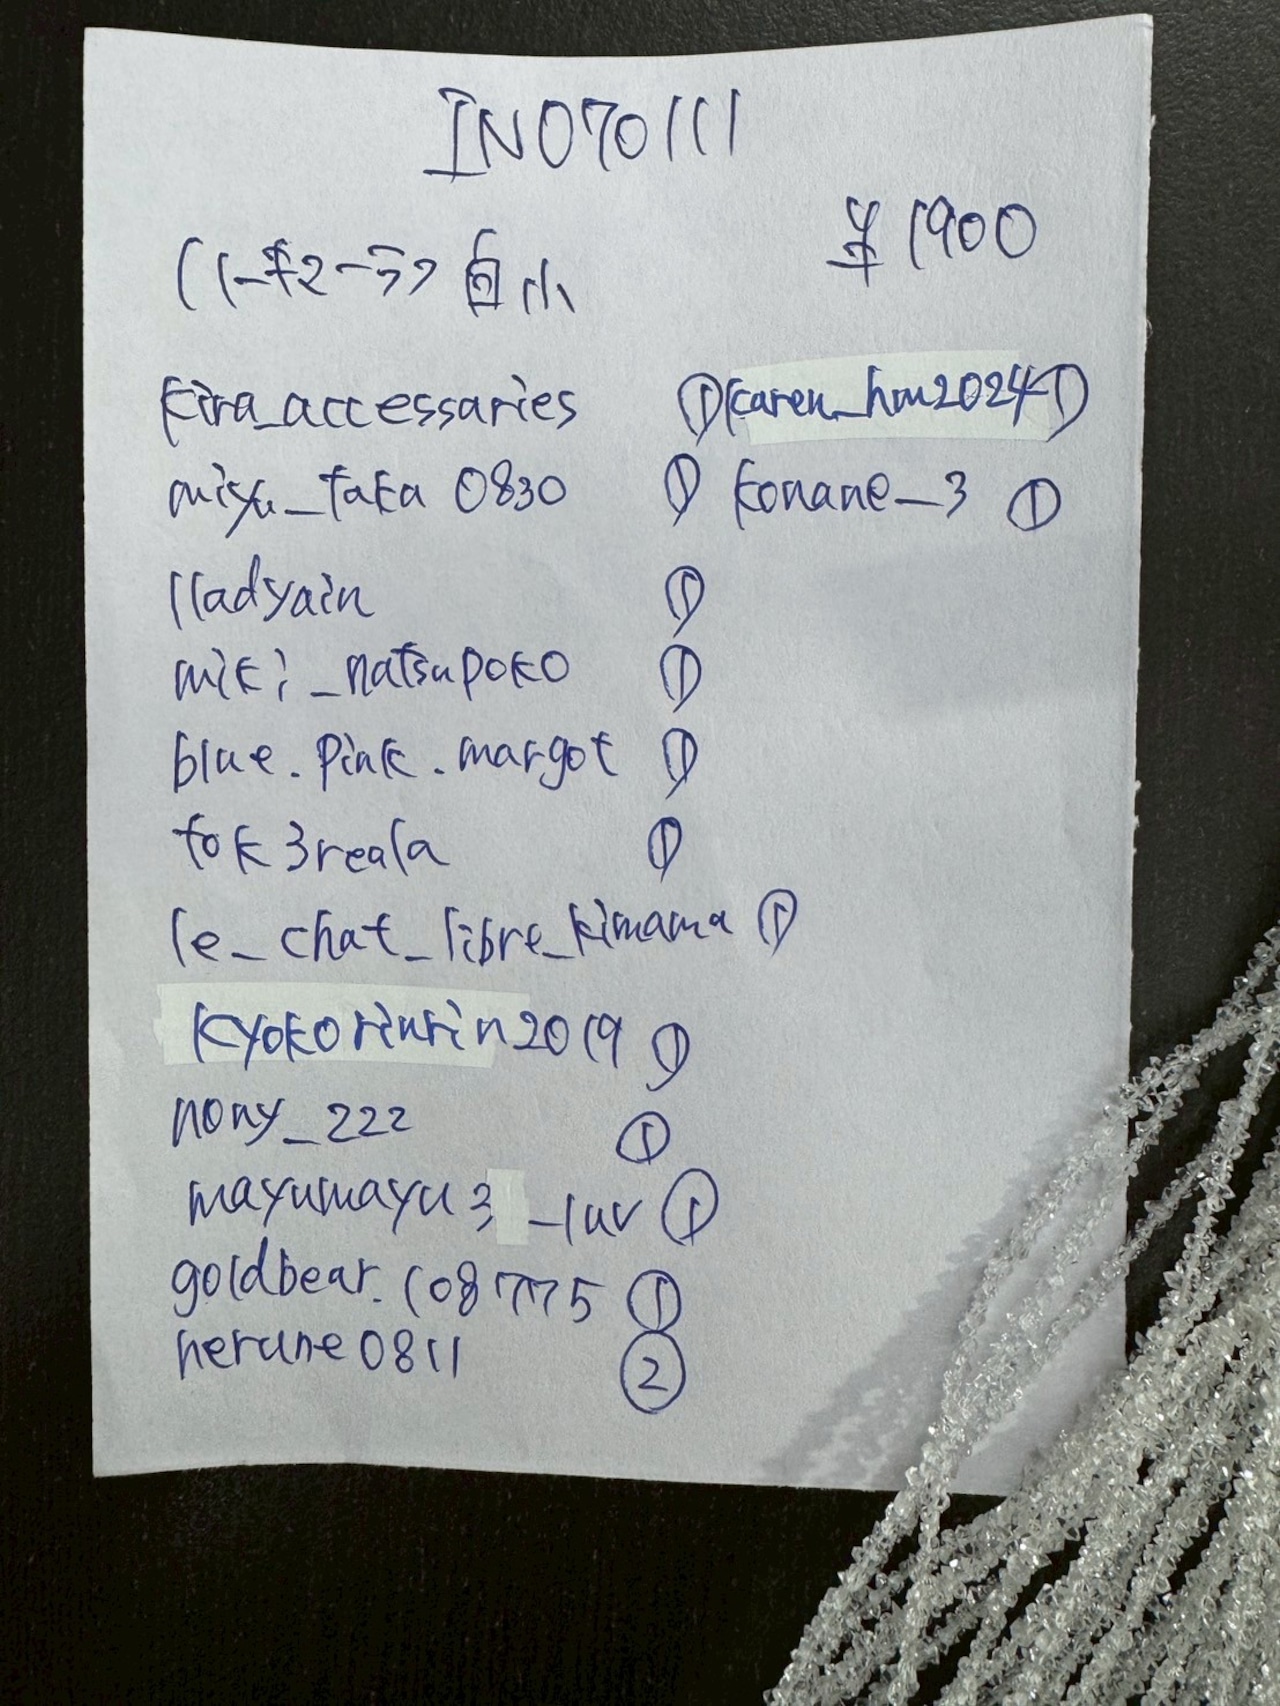 IN070111
¥1900
白小
kira_accessaries ① karen_hm2024 ①
miyu_taka 0830 ① konane_3 ①
lladyain ①
miki_natsupoko ①
blue.pink.margot ①
tok3reala ①
le_chat_libre_kimama ①
kyokorinrin2019 ①
nony_222 ①
mayumayu3_luv ①
goldbear.108775 ①
nerune0811 ②